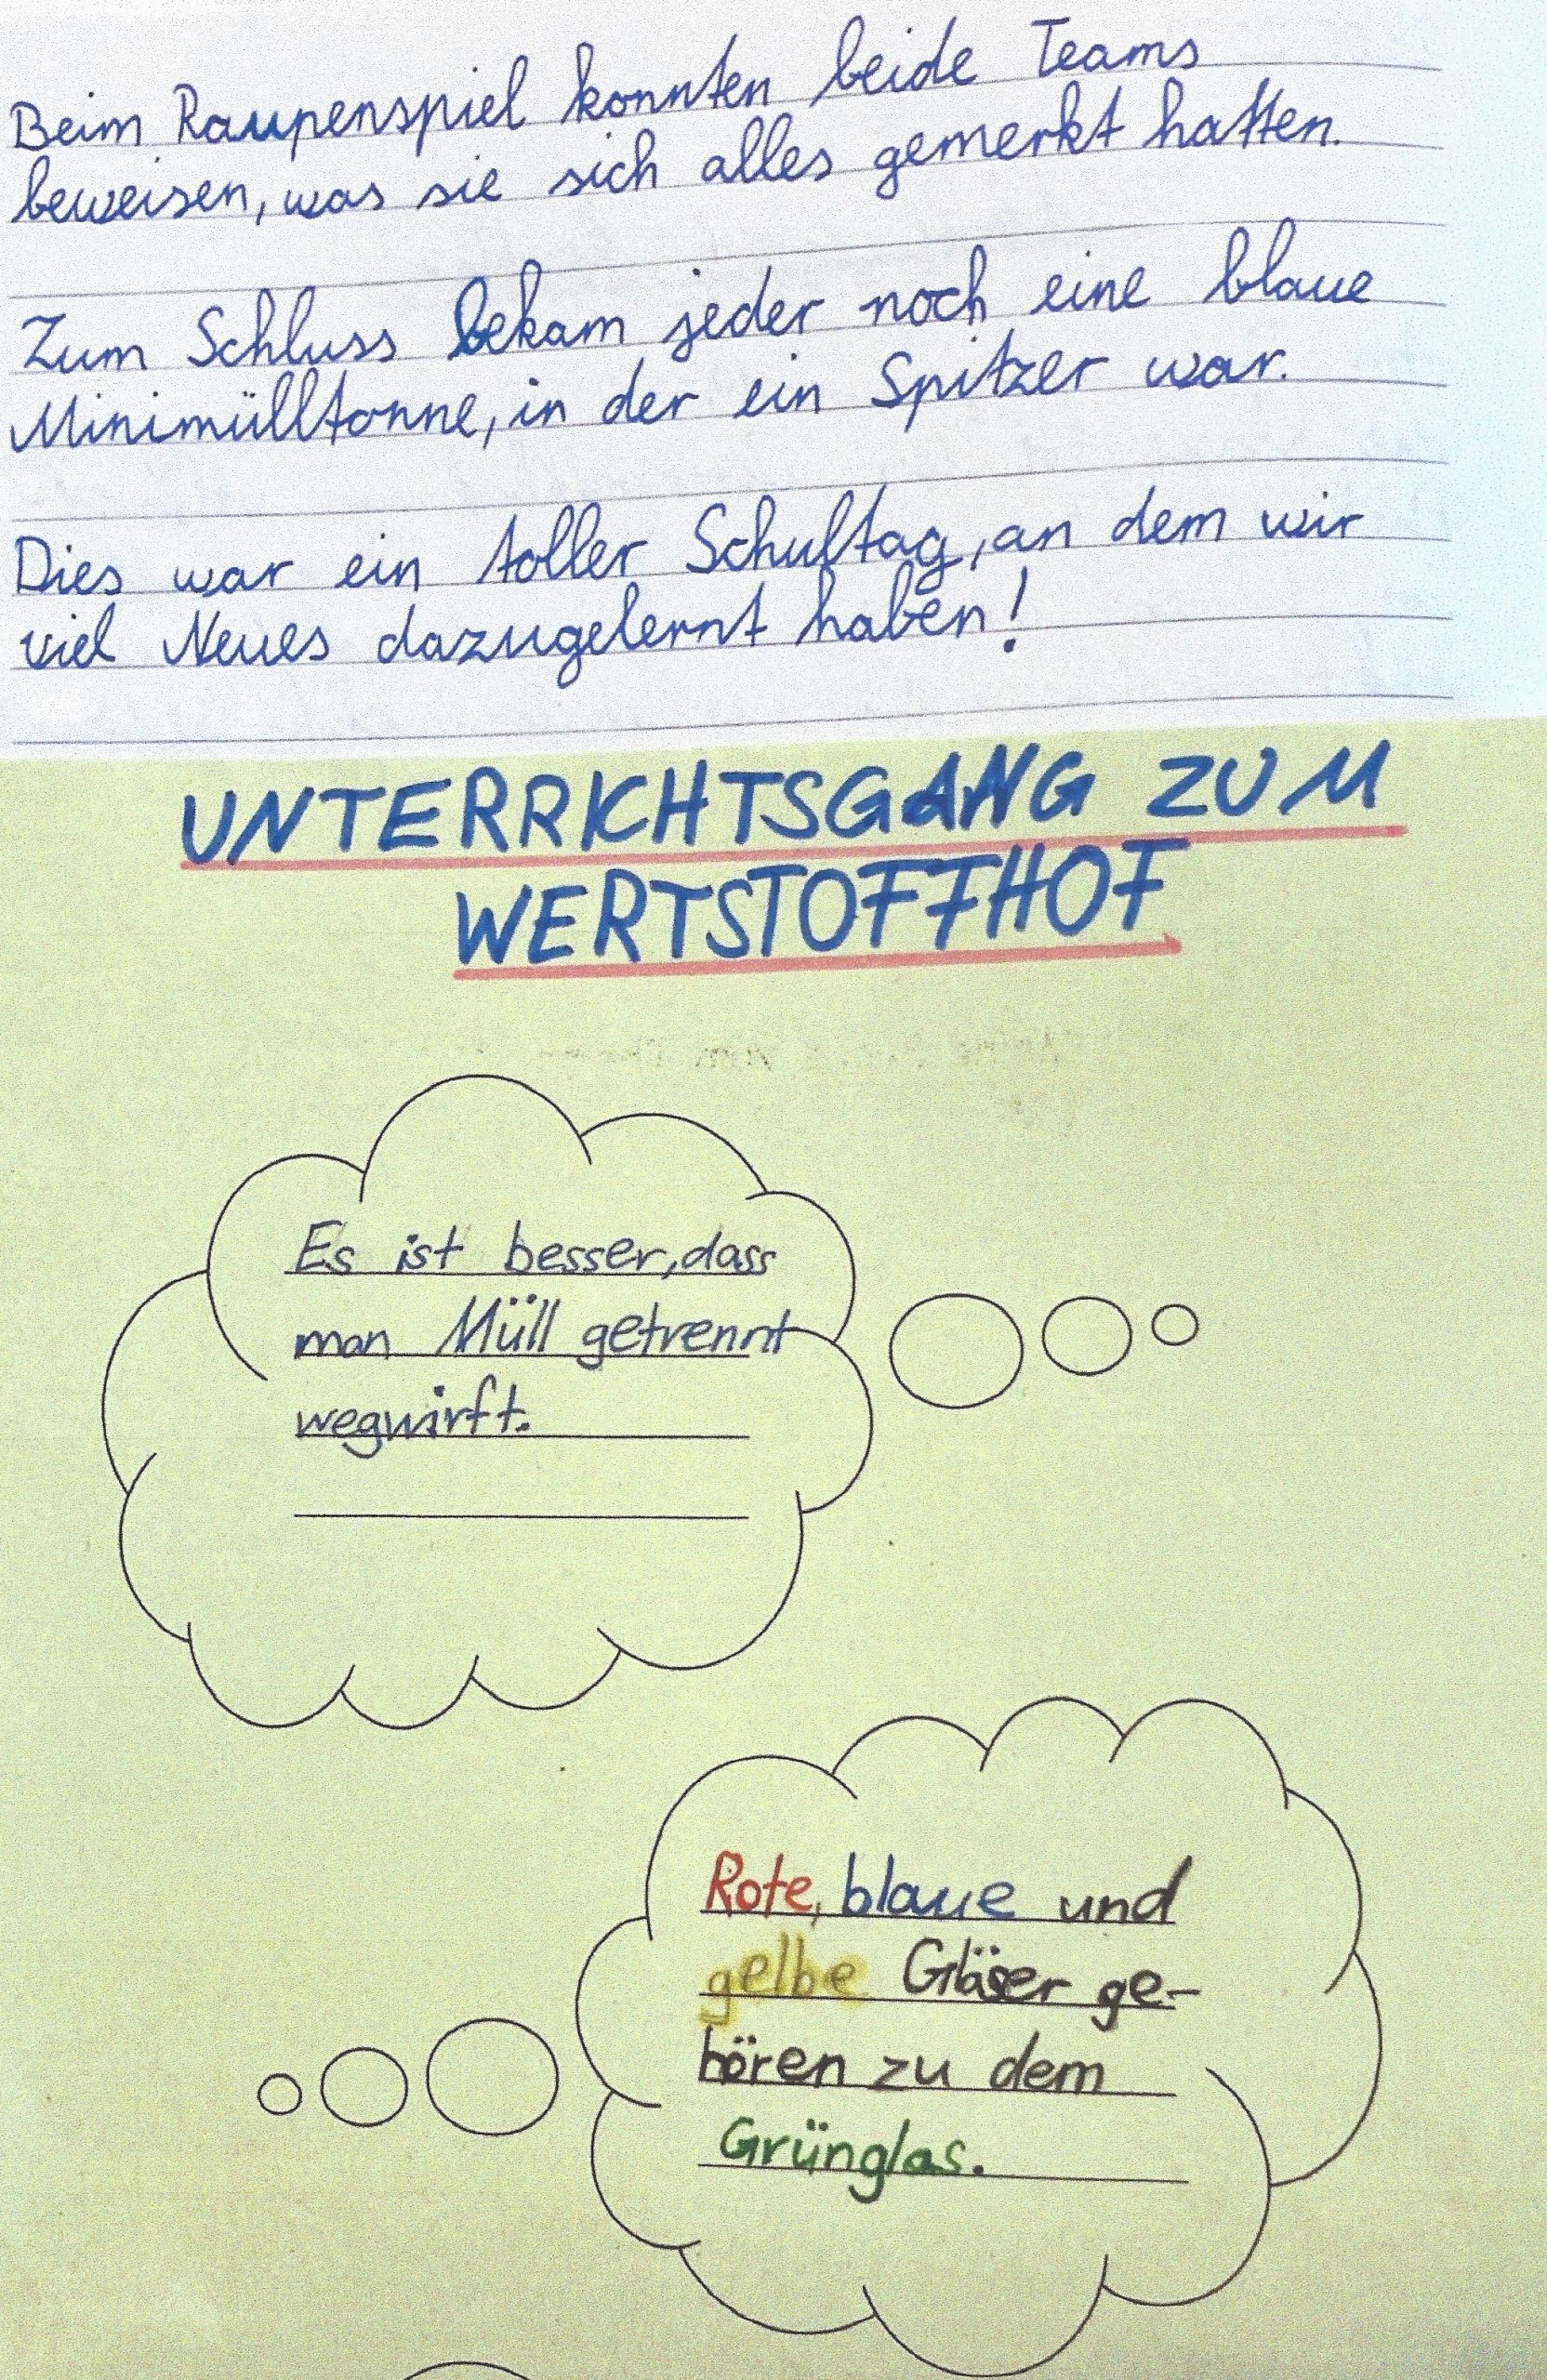 Beim Raupenspiel konnten beide Teams
beweisen, was sie sich alles gemerkt hatten.
Zum Schluss bekam jeder noch eine blaue
Minimülltonne, in der ein Spitzer war.
Dies war ein toller Schultag, an dem wir
viel Neues dazugelernt haben!
UNTERRICHTSGANG ZUM
WERTSTOFFHOF
Es ist besser, dass
man Müll getrennt
wegwirft.
Rote, blaue und
gelbe Gläser ge-
hören zu dem
Grünglas.